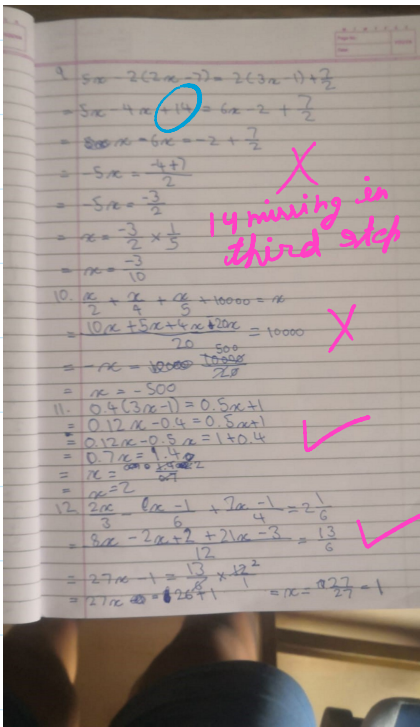 9. 5x - 2(2x - 7) = 2(3x - 1) + 7/2
= 5x - 4x + 14 = 6x - 2 + 7/2
= x - 6x = -2 + 7/2
= -5x = -4+7/2
= -5x = -3/2
= x = -3/2 × 1/5
= x = -3/10
X
14 missing in
third step
10. x/2 + x/4 + x/5 + 10000 = x
= 10x + 5x + 4x - 20x/20 = 10000
X
= -x = 10000/20 500
= x = -500
11. 0.4(3x-1) = 0.5x+1
= 0.12x - 0.4 = 0.5x+1
= 0.12x - 0.5x = 1+0.4
= 0.7x = 1.4
= x =
= x = 2
12. 2x/3 - 2x-1/6 + 7x-1/4 = 2 1/6
= 8x - 2x + 2 + 21x - 3/12 = 13/6
= 27x - 1 = 13/6 × 12/1 2
= 27x = 26+1 = x = 27/27 = 1